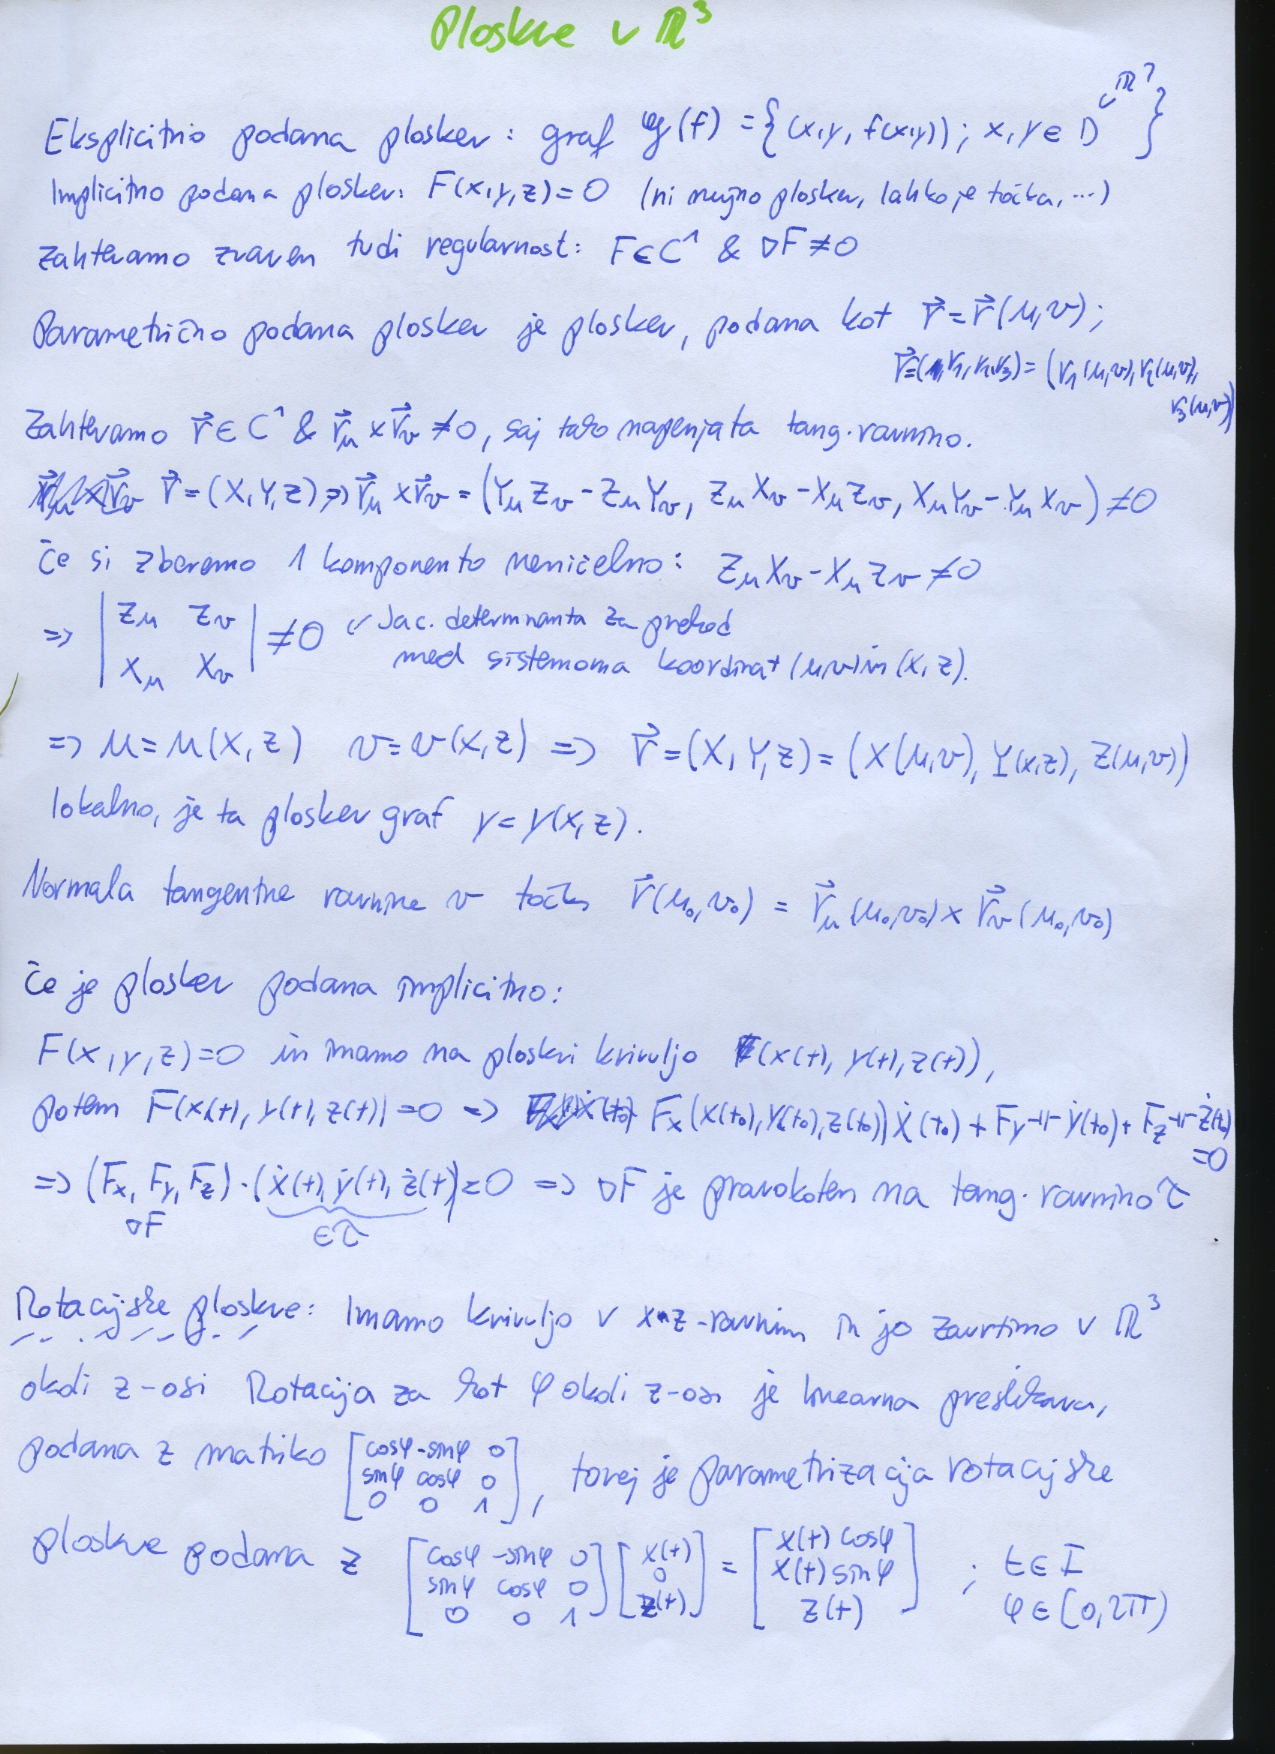 Ploskve v ℝ³
Eksplicitno podana ploskev: graf 𝒢(f) = {(x,y, f(x,y)); x,y ∈ D ⊂ ℝ²}
Implicitno podana ploskev: F(x,y,z)=0 (ni nujno ploskev, lahko je točka, ...)
Zahtevamo zraven tudi regularnost: F∈C¹ & ∇F≠0
Parametrično podana ploskev je ploskev, podana kot r⃗ = r⃗(u,v);
r⃗=(r₁,r₂,r₃) = (r₁(u,v), r₂(u,v),
r₃(u,v))
Zahtevamo r⃗∈C¹ & r⃗ᵤ × r⃗ᵥ ≠0, saj tako napenjata tang. ravnino.
r⃗=(X,Y,Z) ⇒ r⃗ᵤ × r⃗ᵥ = (Yᵤ Zᵥ - Zᵤ Yᵥ, Zᵤ Xᵥ - Xᵤ Zᵥ, Xᵤ Yᵥ - Yᵤ Xᵥ) ≠0
Če si zberemo 1 komponento neničelno: Zᵤ Xᵥ - Xᵤ Zᵥ ≠0
⇒ | Zᵤ Zᵥ | ≠0 ↙ Jac. determinanta za prehod
| Xᵤ Xᵥ | med sistemoma koordinat (u,v) in (x,z).
⇒ u=u(X,Z) v=v(x,z) ⇒ r⃗=(X,Y,Z) = (X(u,v), Y(x,z), Z(u,v))
lokalno, je ta ploskev graf y=y(x,z).
Normala tangentne ravnine v točki r⃗(u₀,v₀) = r⃗ᵤ(u₀,v₀) × r⃗ᵥ(u₀,v₀)
Če je ploskev podana implicitno:
F(x,y,z)=0 in imamo na ploskvi krivuljo (x(t), y(t), z(t)),
potem F(x(t), y(t), z(t))=0 ⇒ Fₓ(x(t₀),y(t₀),z(t₀)) ẋ(t₀) + F_y -||- ẏ(t₀) + F_z -||- ż(t₀)
=0
⇒ (Fₓ, F_y, F_z)·(ẋ(t), ẏ(t), ż(t))=0 ⇒ ∇F je pravokoten na tang. ravnino τ
∇F ∈τ
Rotacijske ploskve: Imamo krivuljo v x-z-ravnini in jo zavrtimo v ℝ³
okoli z-osi Rotacija za kot φ okoli z-osi je linearna preslikava,
podana z matriko [cosφ -sinφ 0
sinφ cosφ 0
0 0 1], torej je parametrizacija rotacijske
ploskve podana z [cosφ -sinφ 0; sinφ cosφ 0; 0 0 1] [x(t); 0; z(t)] = [x(t) cosφ; x(t) sinφ; z(t)] ; t∈I
φ∈[0,2π)